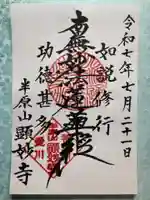 令和七年七月二十一日
如説修行
南無妙法蓮華経
功徳甚多
半原山顕妙寺
愛川